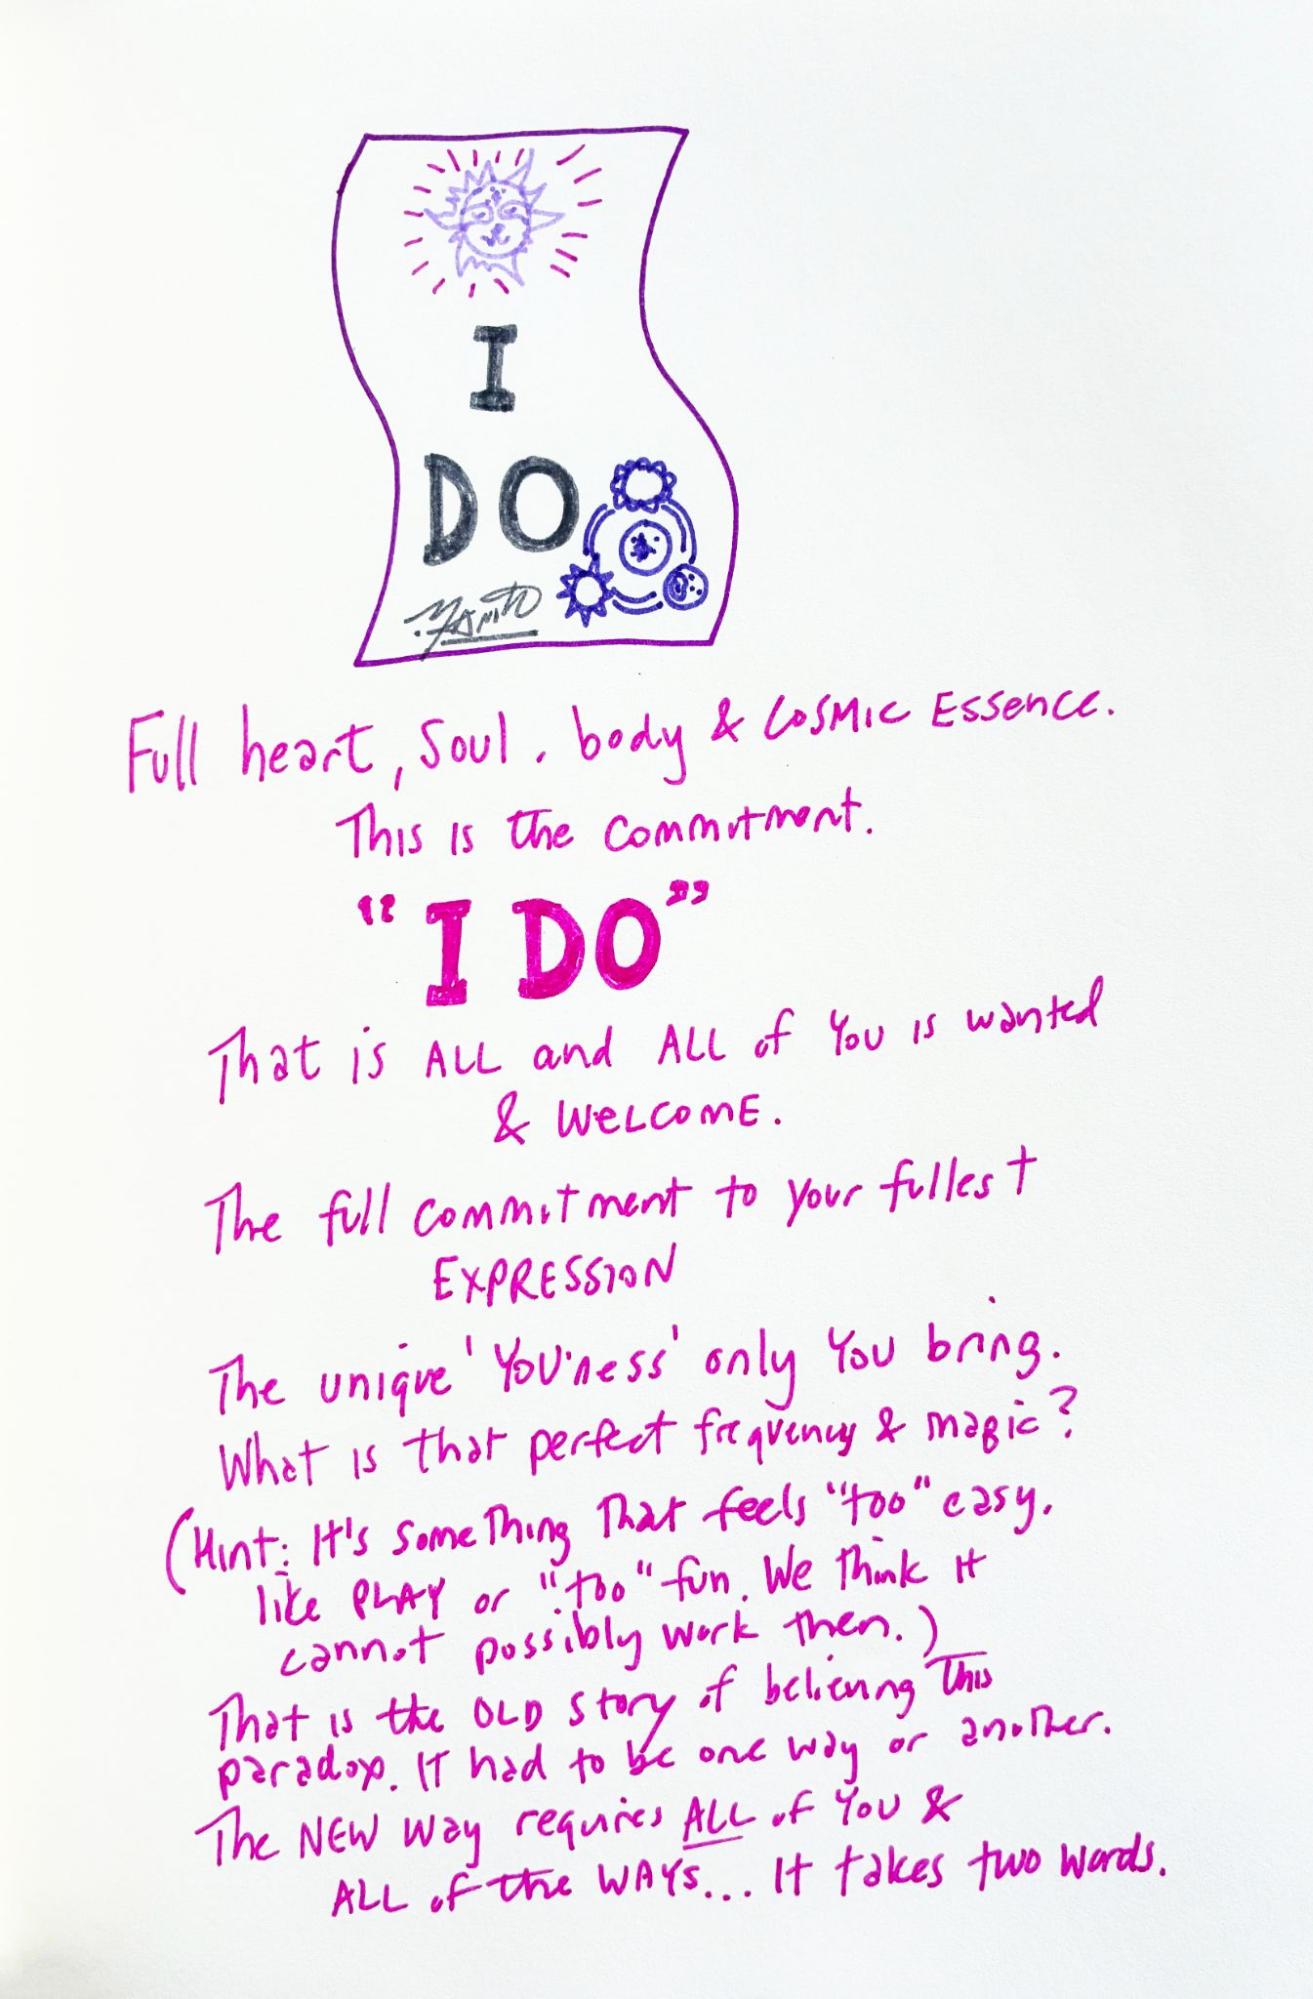 I
DO
Full heart, Soul, body & COSMIC ESSENCE.
This is the commitment.
"I DO"
That is ALL and ALL of You is wanted
& WELCOME.
The full commitment to your fullest
EXPRESSION
The unique 'YOU'ness' only YOU bring.
What is that perfect frequency & magic?
(Hint: It's something that feels "too" easy.
like PLAY or "too" fun. We think it
cannot possibly work then.)
That is the OLD story of believing this
paradox. IT had to be one way or another.
The NEW Way requires ALL of YOU &
ALL of the WAYS... It takes two words.